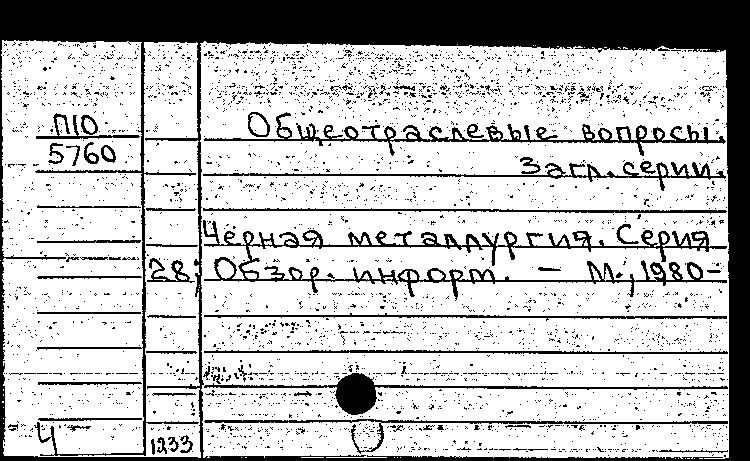 П10
5760
Общеотраслевые вопросы.
Загл. серии.
Чёрная металлургия. Серия
28; Обзор. информ. — М., 1980-
Ч
1233